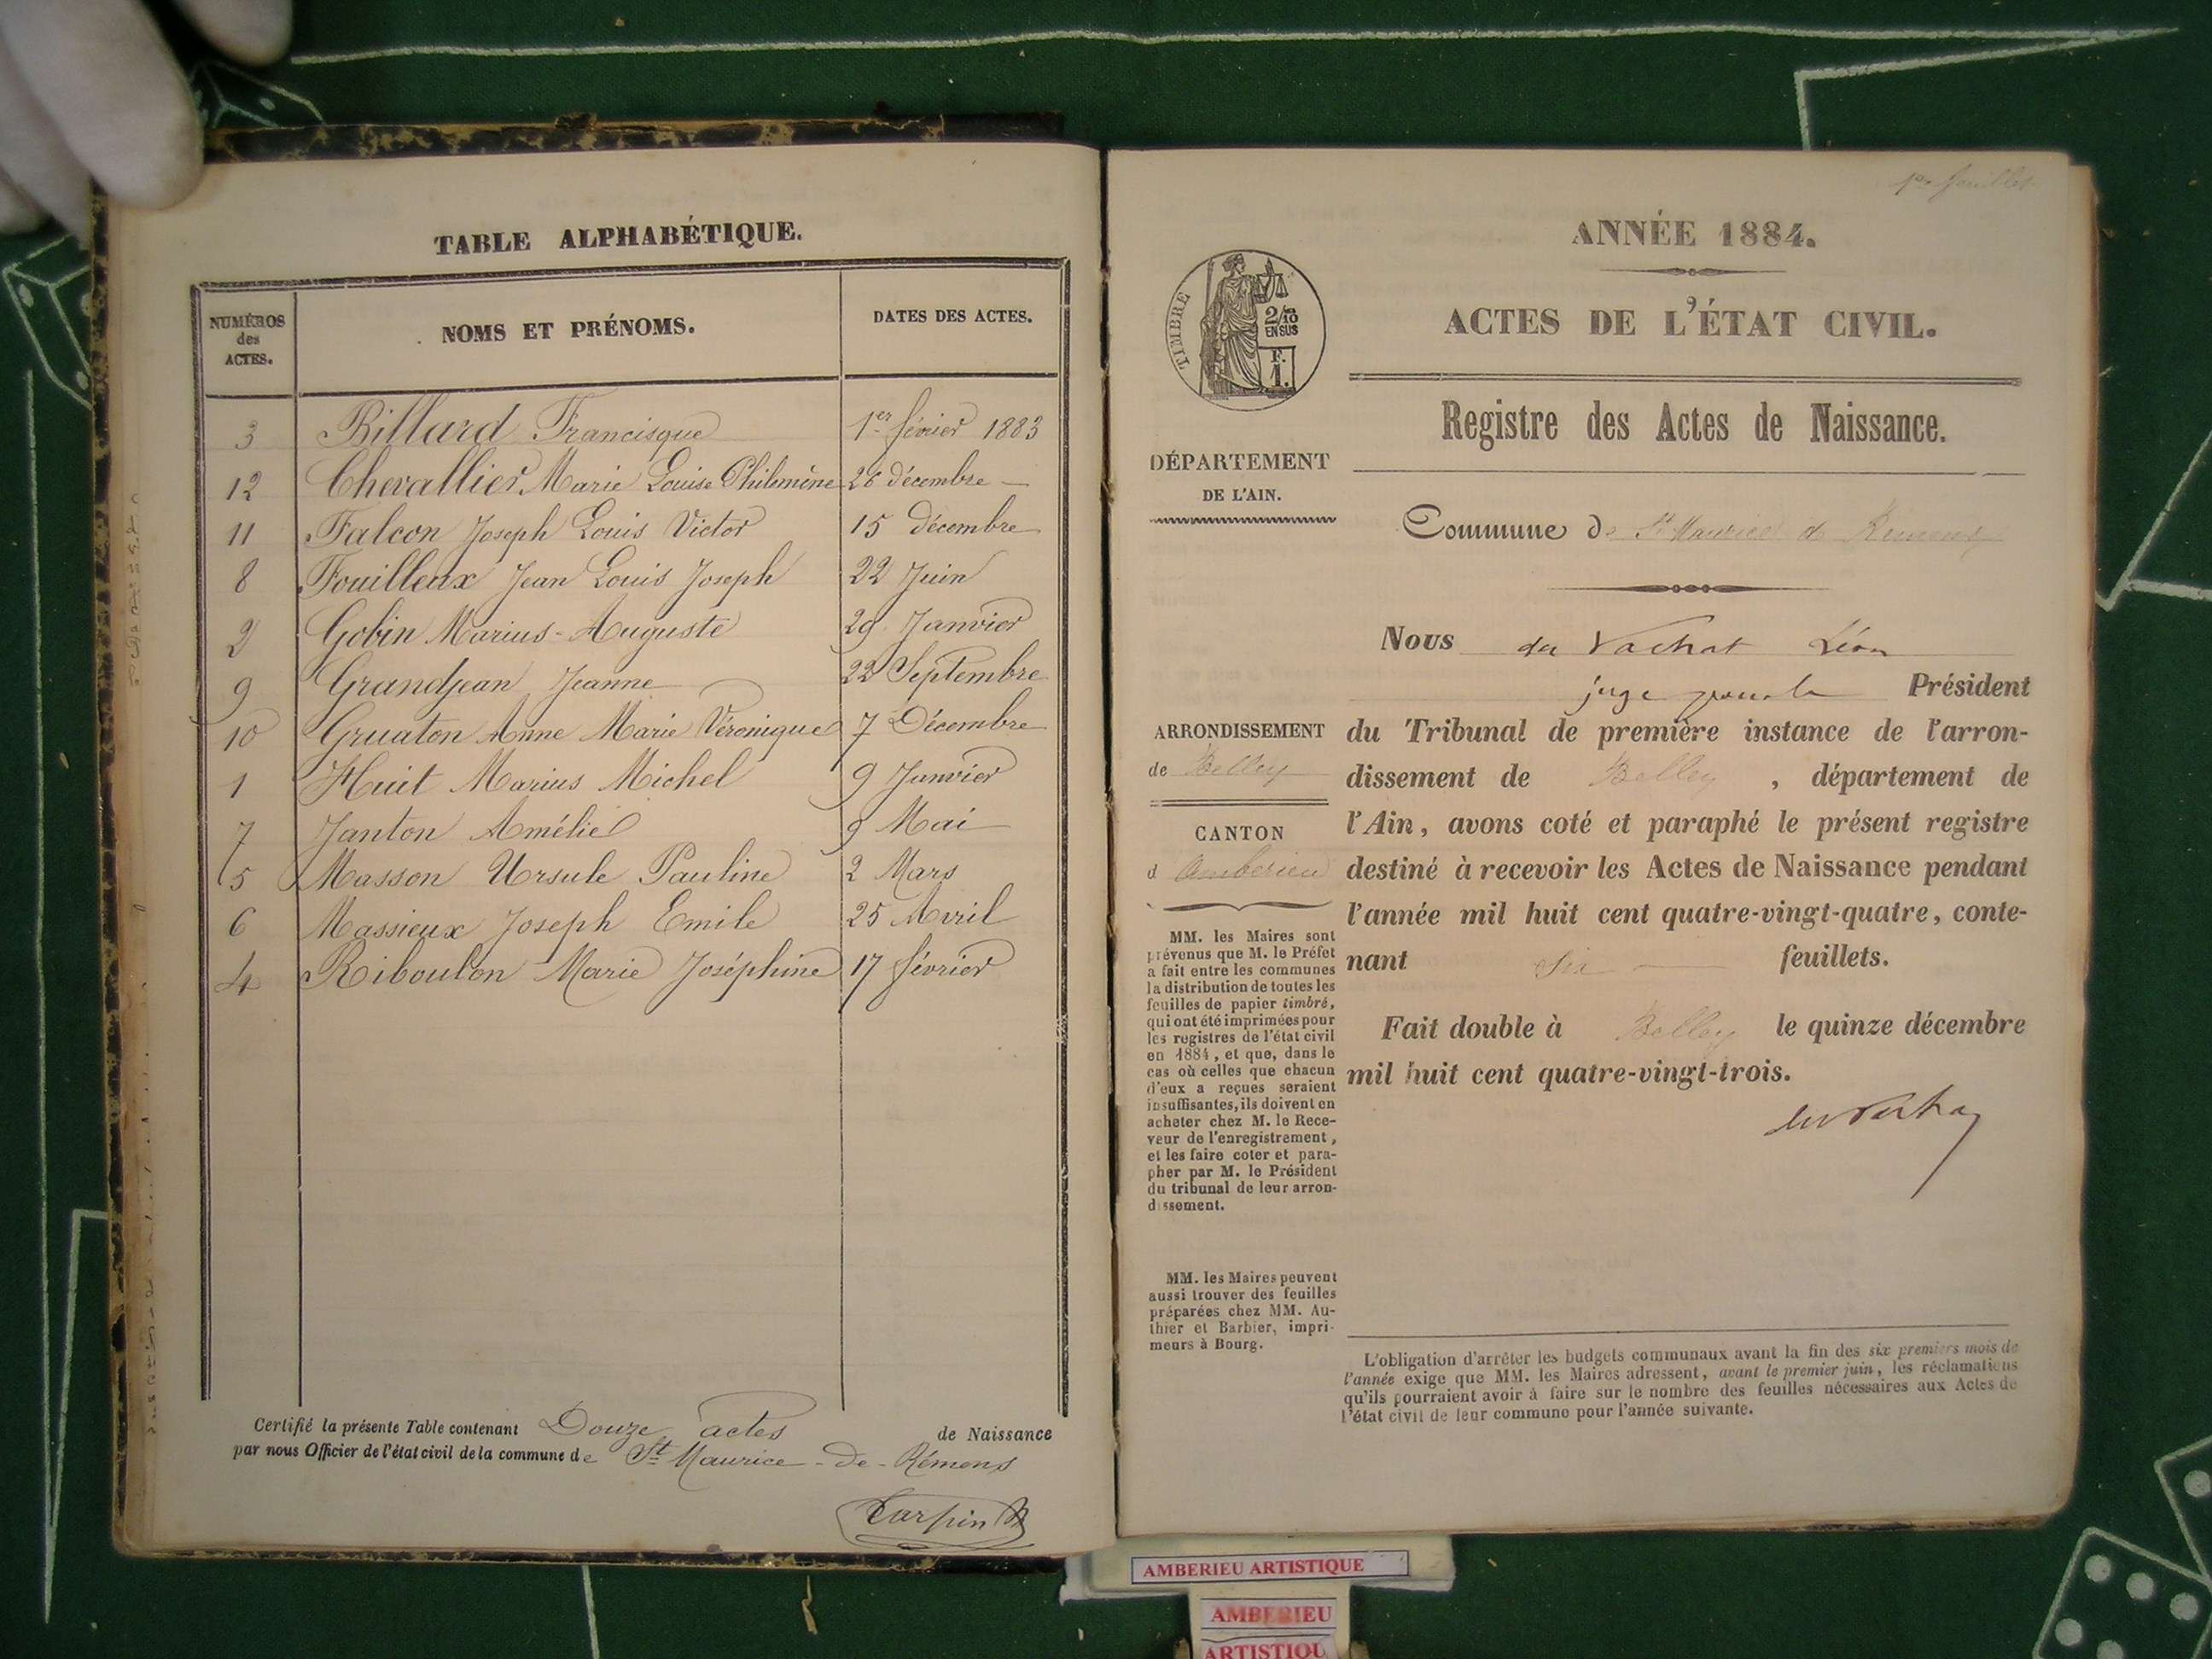 TABLE ALPHABÉTIQUE.
NUMÉROS des ACTES.
NOMS ET PRÉNOMS.
DATES DES ACTES.
3 Billard Francisque 1er février 1883
12 Chevallier Marie Louise Philomène 26 décembre —
11 Falcon Joseph Louis Victor 15 Décembre
8 Fouilleux Jean Louis Joseph 22 Juin
2 Gobin Marius-Auguste 29 Janvier
9 Grandjean Jeanne 22 Septembre
10 Gruaton Anne Marie Véronique 7 Décembre
1 Huit Marius Michel 9 Janvier
7 Janton Amélie 9 Mai
5 Masson Ursule Pauline 2 Mars
6 Massieux Joseph Emile 25 Avril
4 Riboulon Marie Joséphine 17 février
Certifié la présente Table contenant Douze actes de Naissance
par nous Officier de l'état civil de la commune de St Maurice-de-Rémens
1er feuillet
ANNÉE 1884.
TIMBRE
2/10
EN SUS
F.
1.
ACTES DE L'ÉTAT CIVIL.
Registre des Actes de Naissance.
DÉPARTEMENT
DE L'AIN.
Commune de St Maurice de Remens
Nous du Vachat Léon
juge pour le Président
ARRONDISSEMENT
de Belley
du Tribunal de première instance de l'arron-
dissement de Belley, département de
l'Ain, avons coté et paraphé le présent registre
destiné à recevoir les Actes de Naissance pendant
l'année mil huit cent quatre-vingt-quatre, conte-
nant six feuillets.
Fait double à Belley le quinze décembre
mil huit cent quatre-vingt-trois.
CANTON
d Amberieu
MM. les Maires sont
prévenus que M. le Préfet
a fait entre les communes
la distribution de toutes les
feuilles de papier timbré,
qui ont été imprimées pour
les registres de l'état civil
en 1884, et que, dans le
cas où celles que chacun
d'eux a reçues seraient
insuffisantes, ils doivent en
acheter chez M. le Rece-
veur de l'enregistrement,
et les faire coter et para-
pher par M. le Président
du tribunal de leur arron-
dissement.
MM. les Maires peuvent
aussi trouver des feuilles
préparées chez MM. Au-
thier et Barbier, impri-
meurs à Bourg.
L'obligation d'arrêter les budgets communaux avant la fin des six premiers mois de
l'année exige que MM. les Maires adressent, avant le premier juin, les réclamations
qu'ils pourraient avoir à faire sur le nombre des feuilles nécessaires aux Actes de
l'état civil de leur commune pour l'année suivante.
AMBERIEU ARTISTIQUE
AMBERIEU
ARTISTIQU